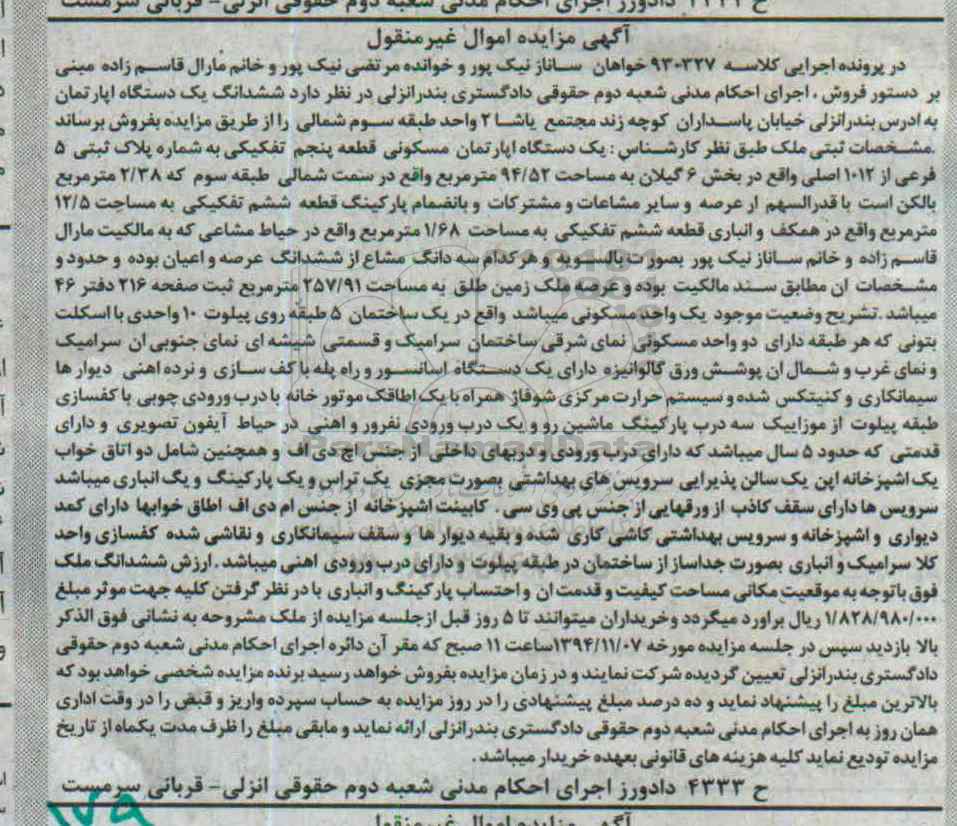 ح ۴۳۳۳ دادورز اجرای احکام مدنی شعبه دوم حقوقی انزلی- قربانی سرمست
آگهی مزایده اموال غیرمنقول
در پرونده اجرایی کلاسه ۹۳۰۳۲۷ خواهان ساناز نیک پور و خوانده مرتضی نیک پور و خانم مارال قاسم زاده مبنی
بر دستور فروش ، اجرای احکام مدنی شعبه دوم حقوقی دادگستری بندرانزلی در نظر دارد ششدانگ یک دستگاه اپارتمان
به ادرس بندرانزلی خیابان پاسداران کوچه زند مجتمع یاشا ۲ واحد طبقه سوم شمالی را از طریق مزایده بفروش برساند
.مشخصات ثبتی ملک طبق نظر کارشناس : یک دستگاه اپارتمان مسکونی قطعه پنجم تفکیکی به شماره پلاک ثبتی ۵
فرعی از ۱۰۱۲ اصلی واقع در بخش ۶ گیلان به مساحت ۹۴/۵۲ مترمربع واقع در سمت شمالی طبقه سوم که ۲/۳۸ مترمربع
بالکن است با قدرالسهم از عرصه و سایر مشاعات و مشترکات و بانضمام پارکینگ قطعه ششم تفکیکی به مساحت ۱۲/۵
مترمربع واقع در همکف و انباری قطعه ششم تفکیکی به مساحت ۱/۶۸ مترمربع واقع در حیاط مشاعی که به مالکیت مارال
قاسم زاده و خانم ساناز نیک پور بصورت بالسویه و هرکدام سه دانگ مشاع از ششدانگ عرصه و اعیان بوده و حدود و
مشخصات ان مطابق سند مالکیت بوده و عرصه ملک زمین طلق به مساحت ۲۵۷/۹۱ مترمربع ثبت صفحه ۲۱۶ دفتر ۴۶
میباشد .تشریح وضعیت موجود یک واحد مسکونی میباشد واقع در یک ساختمان ۵ طبقه روی پیلوت ۱۰ واحدی با اسکلت
بتونی که هر طبقه دارای دو واحد مسکونی نمای شرقی ساختمان سرامیک و قسمتی شیشه ای نمای جنوبی ان سرامیک
و نمای غرب و شمال ان پوشش ورق گالوانیزه دارای یک دستگاه اسانسور و راه پله با کف سازی و نرده اهنی دیوار ها
سیمانکاری و کنیتکس شده و سیستم حرارت مرکزی شوفاژ همراه با یک اطاقک موتور خانه با درب ورودی چوبی با کفسازی
طبقه پیلوت از موزاییک سه درب پارکینگ ماشین رو و یک درب ورودی نفررو و اهنی در حیاط آیفون تصویری و دارای
قدمتی که حدود ۵ سال میباشد که دارای درب ورودی و دربهای داخلی از جنس اچ دی اف و همچنین شامل دو اتاق خواب
یک اشپزخانه اپن یک سالن پذیرایی سرویس های بهداشتی بصورت مجزی یک تراس و یک پارکینگ و یگ انباری میباشد
سرویس ها دارای سقف کاذب از ورقهایی از جنس پی وی سی . کابینت اشپزخانه از جنس ام دی اف اطاق خوابها دارای کمد
دیواری و اشپزخانه و سرویس بهداشتی کاشی کاری شده و بقیه دیوار ها و سقف سیمانکاری و نقاشی شده کفسازی واحد
کلا سرامیک و انباری بصورت جداساز از ساختمان در طبقه پیلوت و دارای درب ورودی اهنی میباشد . ارزش ششدانگ ملک
فوق باتوجه به موقعیت مکانی مساحت کیفیت و قدمت ان و احتساب پارکینگ و انباری با در نظر گرفتن کلیه جهت موثر مبلغ
۱/۸۲۸/۹۸۰/۰۰۰ ریال براورد میگردد وخریداران میتوانند تا ۵ روز قبل ازجلسه مزایده از ملک مشروحه به نشانی فوق الذکر
بالا بازدید سپس در جلسه مزایده مورخه ۱۳۹۴/۱۱/۰۷ساعت ۱۱ صبح که مقر آن دائره اجرای احکام مدنی شعبه دوم حقوقی
دادگستری بندرانزلی تعیین گردیده شرکت نمایند و در زمان مزایده بفروش خواهد رسید برنده مزایده شخصی خواهد بود که
بالاترین مبلغ را پیشنهاد نماید و ده درصد مبلغ پیشنهادی را در روز مزایده به حساب سپرده واریز و قبض را در وقت اداری
همان روز به اجرای احکام مدنی شعبه دوم حقوقی دادگستری بندرانزلی ارائه نماید و مابقی مبلغ را ظرف مدت یکماه از تاریخ
مزایده تودیع نماید کلیه هزینه های قانونی بعهده خریدار میباشد .
ح ۴۳۳۳ دادورز اجرای احکام مدنی شعبه دوم حقوقی انزلی- قربانی سرمست
۱۷۹
آگهی مزایده اموال غیرمنقول
ParsNamadData